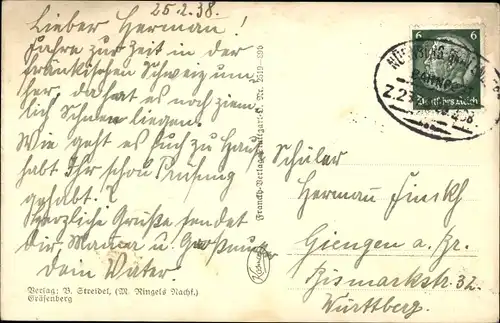 25.2.38.
Lieber Herman!
Fahre zur Zeit in der
fränkischen Schweiz um,
her, da hat es noch ziem,
lich Schnee liegen.
Wie geht es Euch zu Haus
habt Ihr schon Prüfung
gehabt?
Herzliche Grüße sendet
dir Mamma u. Großmutter
dein Vater.
Verlag: B. Streidel, (M. Ringels Nachf.)
Gräfenberg
Franckh-Verlag, Stuttgart-O. Nr.
6 6
Deutsches Reich
BAHNPOST
Schüler
Hermann Finckh
Giengen a. Br.
Bismarckstr. 32.
Württberg.